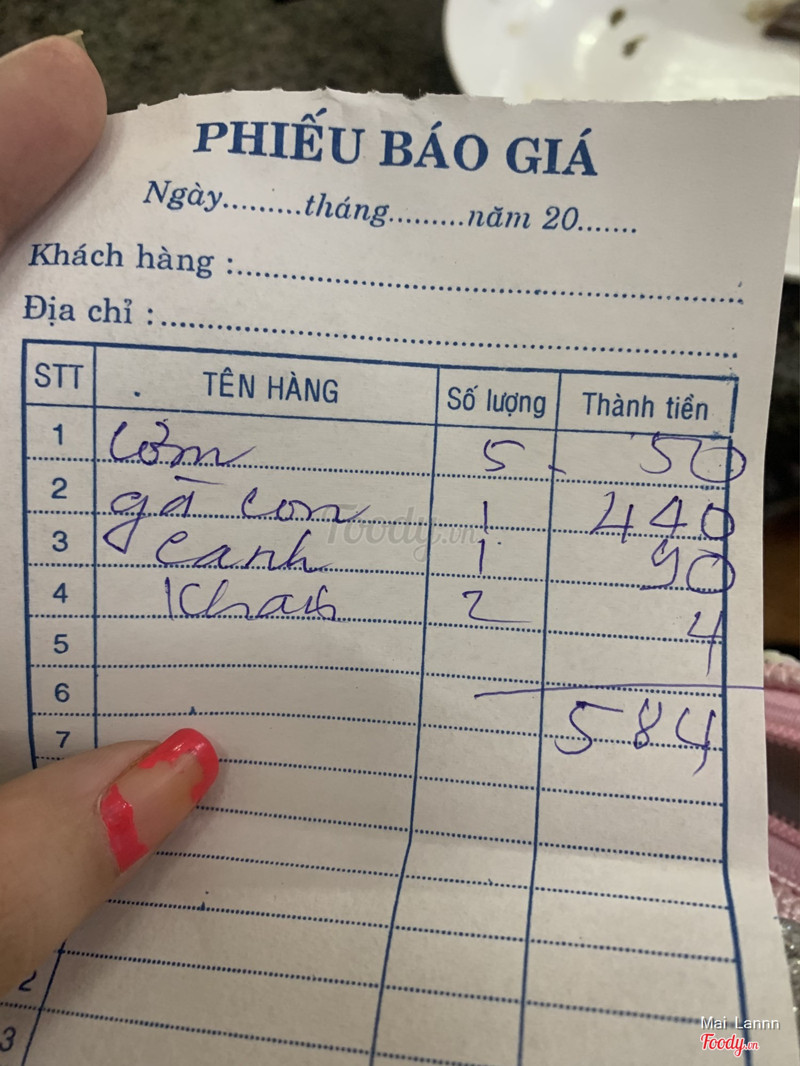 PHIẾU BÁO GIÁ
Ngày.........tháng.........năm 20.......
Khách hàng :
Địa chỉ :
STT TÊN HÀNG Số lượng Thành tiền
1 Cơm 5 50
2 gà con 1 440
3 canh 1 90
4 Khăn 2 4
5
6
7 584
2
3
Foody.vn
Mai Lannn
Foody.vn